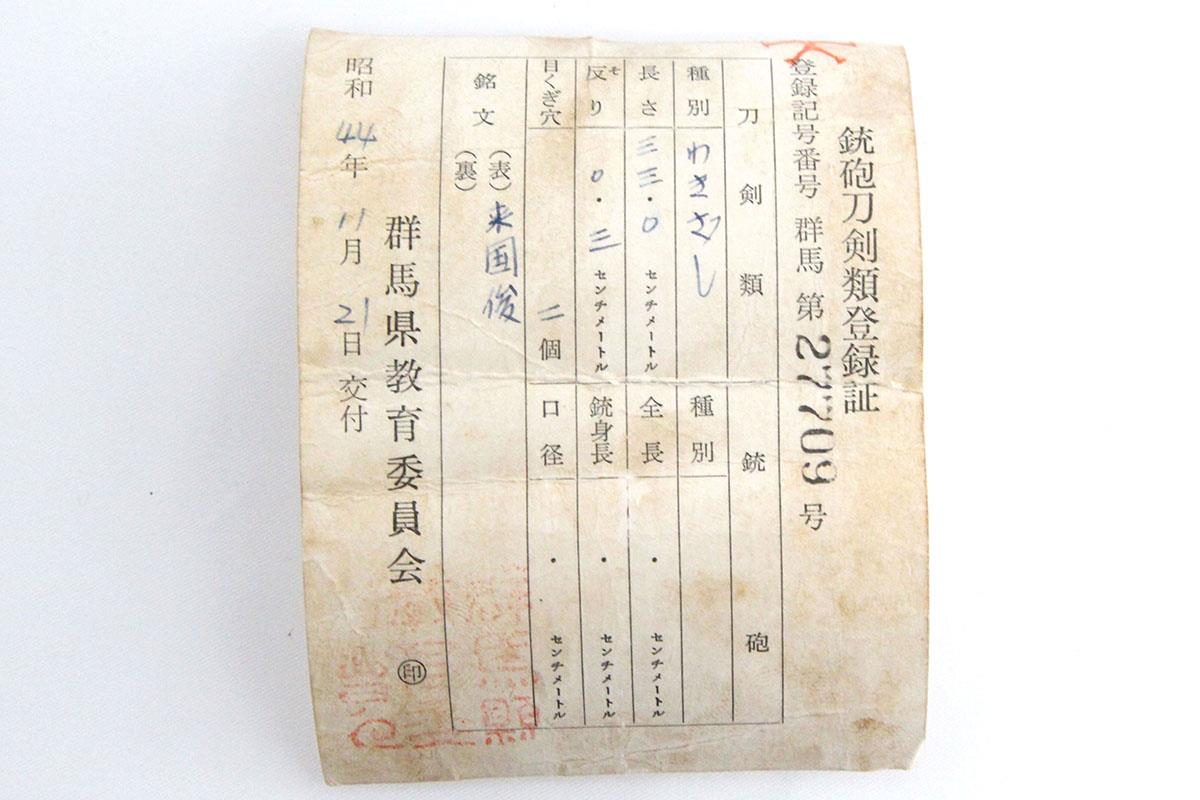 銃砲刀剣類登録証
登録記号番号 群馬 第 27709 号
刀剣類
銃砲
種別 わきざし
種別
長さ 三三・〇 センチメートル
全長 ・ センチメートル
反り ソ 〇・三 センチメートル
銃身長 ・ センチメートル
目くぎ穴 二 個
口径 ・ センチメートル
銘文 (表) 来国俊
(裏)
群馬県教育委員会 印
昭和 44 年 11 月 21 日 交付